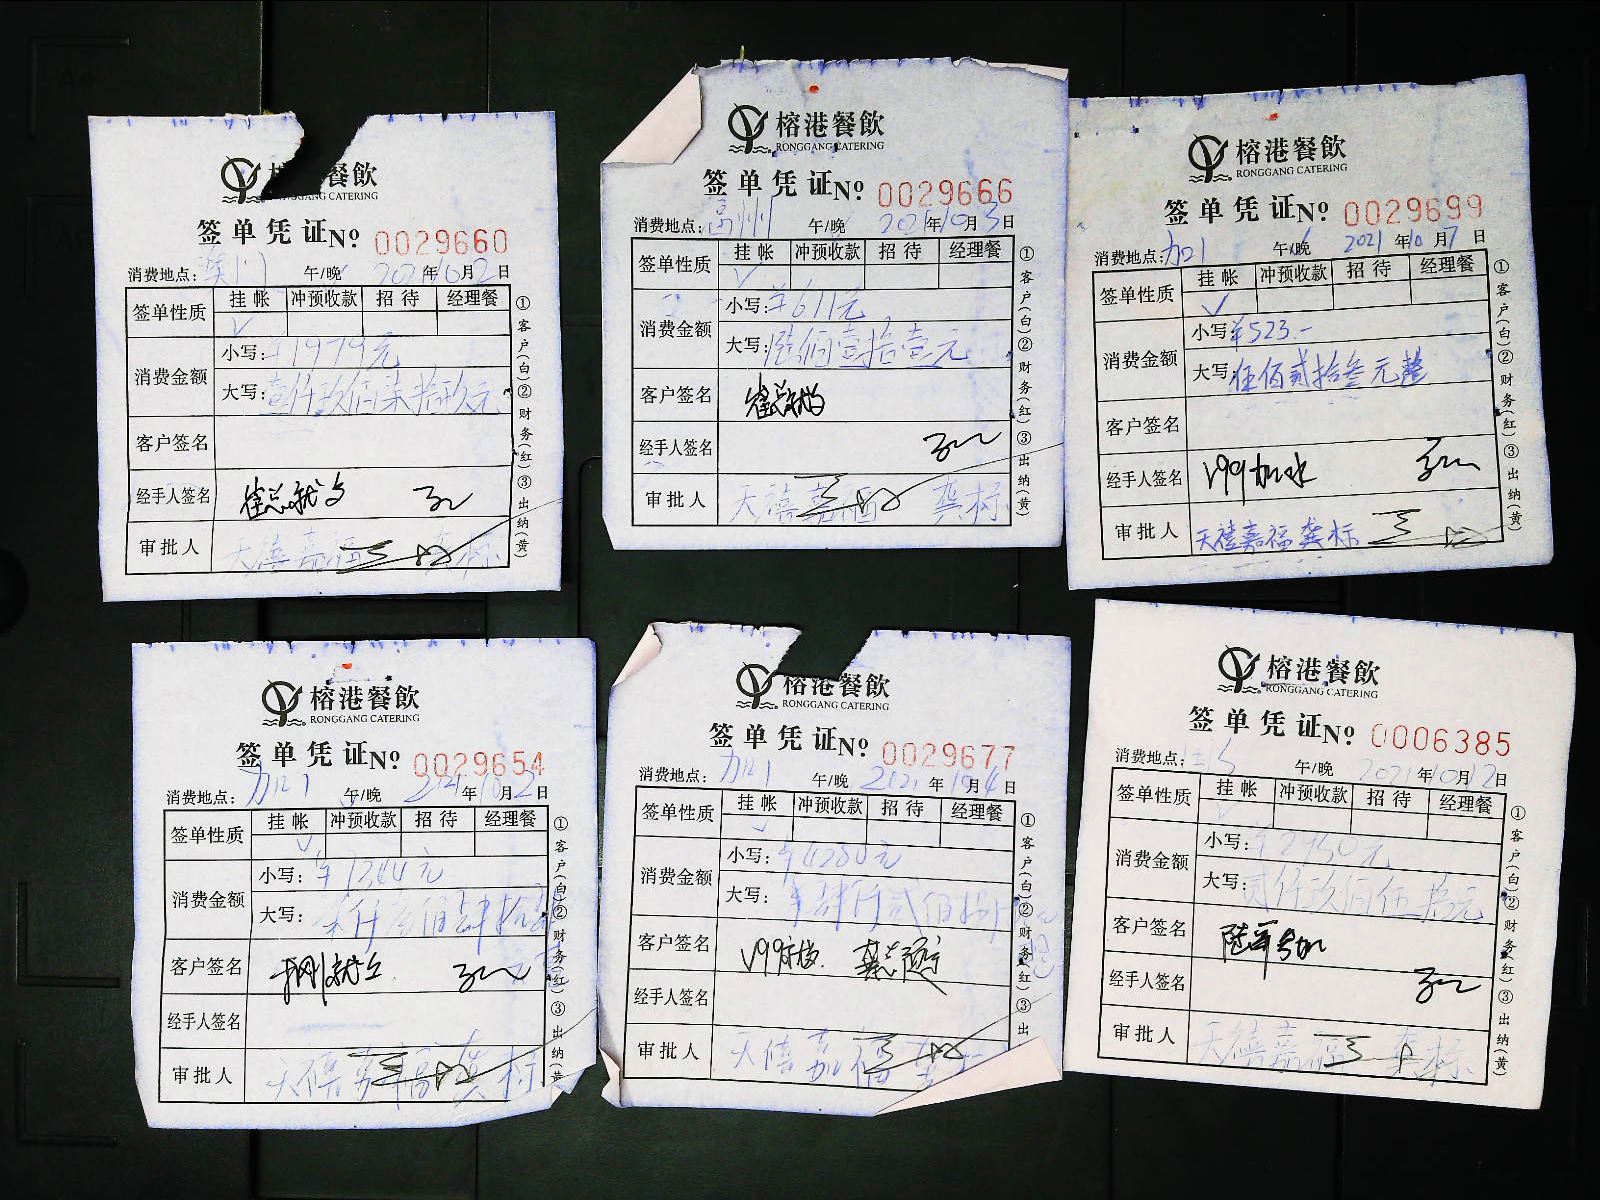 榕港餐飲
RONGGANG CATERING
签单凭证 No 0029660
消费地点: 午/晚 2021年10月2日
签单性质 挂帐 冲预收款 招待 经理餐
✓
消费金额 小写: ¥1979元
大写: 壹仟玖佰柒拾玖元
客户签名
经手人签名
审批人 天禧嘉福 龚标
①客户(白)②财务(红)③出纳(黄)
榕港餐飲
RONGGANG CATERING
签单凭证 No 0029666
消费地点: 午/晚 2021年10月3日
签单性质 挂帐 冲预收款 招待 经理餐
✓
消费金额 小写: ¥611元
大写: 陆佰壹拾壹元
客户签名
经手人签名
审批人 天禧嘉福 龚标
①客户(白)②财务(红)③出纳(黄)
榕港餐飲
RONGGANG CATERING
签单凭证 No 0029699
消费地点: 午/晚 2021年10月7日
签单性质 挂帐 冲预收款 招待 经理餐
✓
消费金额 小写: ¥523.-
大写: 伍佰贰拾叁元整
客户签名
经手人签名 V99
审批人 天禧嘉福龚标
①客户(白)②财务(红)③出纳(黄)
榕港餐飲
RONGGANG CATERING
签单凭证 No 0029654
消费地点: 午/晚 2021年10月2日
签单性质 挂帐 冲预收款 招待 经理餐
✓
消费金额 小写: ¥7344元
大写: 柒仟叁佰肆拾肆
客户签名
经手人签名
审批人 天禧嘉福 龚标
①客户(白)②财务(红)③出纳(黄)
榕港餐飲
RONGGANG CATERING
签单凭证 No 0029677
消费地点: 午/晚 2021年10月4日
签单性质 挂帐 冲预收款 招待 经理餐
✓
消费金额 小写: ¥4280元
大写: 肆仟贰佰捌拾元
客户签名 V99
经手人签名
审批人 天禧嘉福
①客户(白)②财务(红)③出
榕港餐飲
RONGGANG CATERING
签单凭证 No 0006385
消费地点: 午/晚 2021年10月12日
签单性质 挂帐 冲预收款 招待 经理餐
消费金额 小写: ¥2950元
大写: 贰仟玖佰伍拾元
客户签名
经手人签名
审批人 天禧嘉福 龚标
①客户(白)②财务(红)③出纳(黄)